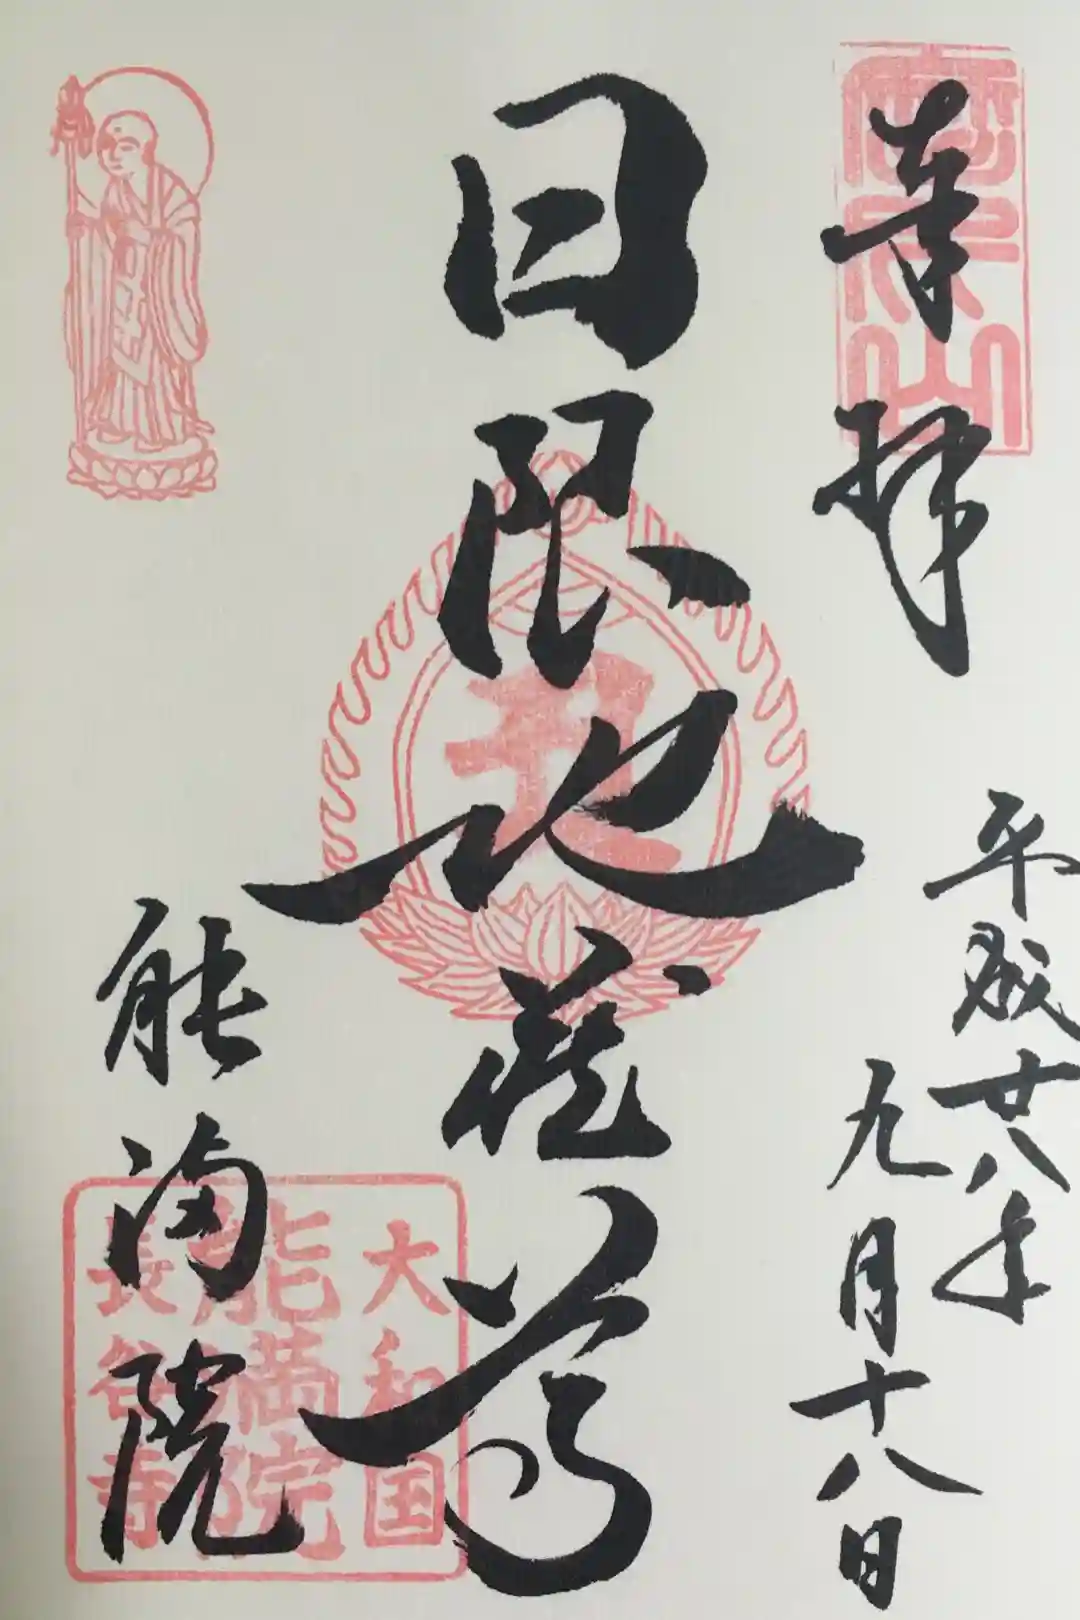 奉拝
平成廿八年
九月十八日
日限地蔵尊
能満院
大和国
能満院
長谷寺